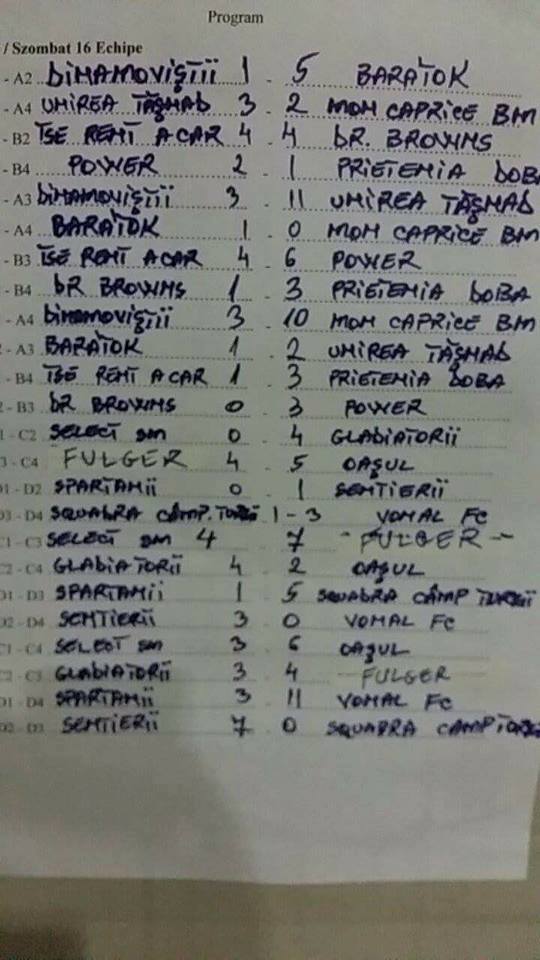 Program
/ Szombat 16 Echipe
- A2 DINAMOVIŞTII 1 - 5 BARATOK
- A4 UNIREA TĂŞNAD 3 - 2 MON CAPRICE BM
- B2 TSE RENT A CAR 4 - 4 DR. BROWNS
- B4 POWER 2 - 1 PRIETENIA DOBA
- A3 DINAMOVIŞTII 3 - 11 UNIREA TĂŞNAD
- A4 BARATOK 1 - 0 MON CAPRICE BM
- B3 TSE RENT A CAR 4 - 6 POWER
- B4 DR BROWNS 1 - 3 PRIETENIA DOBA
- A4 DINAMOVIŞTII 3 - 10 MON CAPRICE BM
- A3 BARATOK 1 - 2 UNIREA TĂŞNAD
- B4 TSE RENT A CAR 1 - 3 PRIETENIA DOBA
2 - B3 DR BROWNS 0 - 3 POWER
1 - C2 SELECT SM 0 - 4 GLADIATORII
3 - C4 FULGER 4 - 5 OAŞUL
D1 - D2 SPARTANII 0 - 1 SENTIERII
D3 - D4 SQUADRA CÂMP. TURZII 1 - 3 VONAL FC
C1 - C3 SELECT SM 4 - 7 - FULGER -
C2 - C4 GLADIATORII 4 - 2 OAŞUL
D1 - D3 SPARTANII 1 - 5 SQUADRA CÂMP TURZII
D2 - D4 SENTIERII 3 - 0 VONAL FC
C1 - C4 SELECT SM 3 - 6 OAŞUL
C2 - C3 GLADIATORII 3 - 4 FULGER
D1 - D4 SPARTANII 3 - 11 VONAL FC
D2 - D3 SENTIERII 7 - 0 SQUADRA CAMP